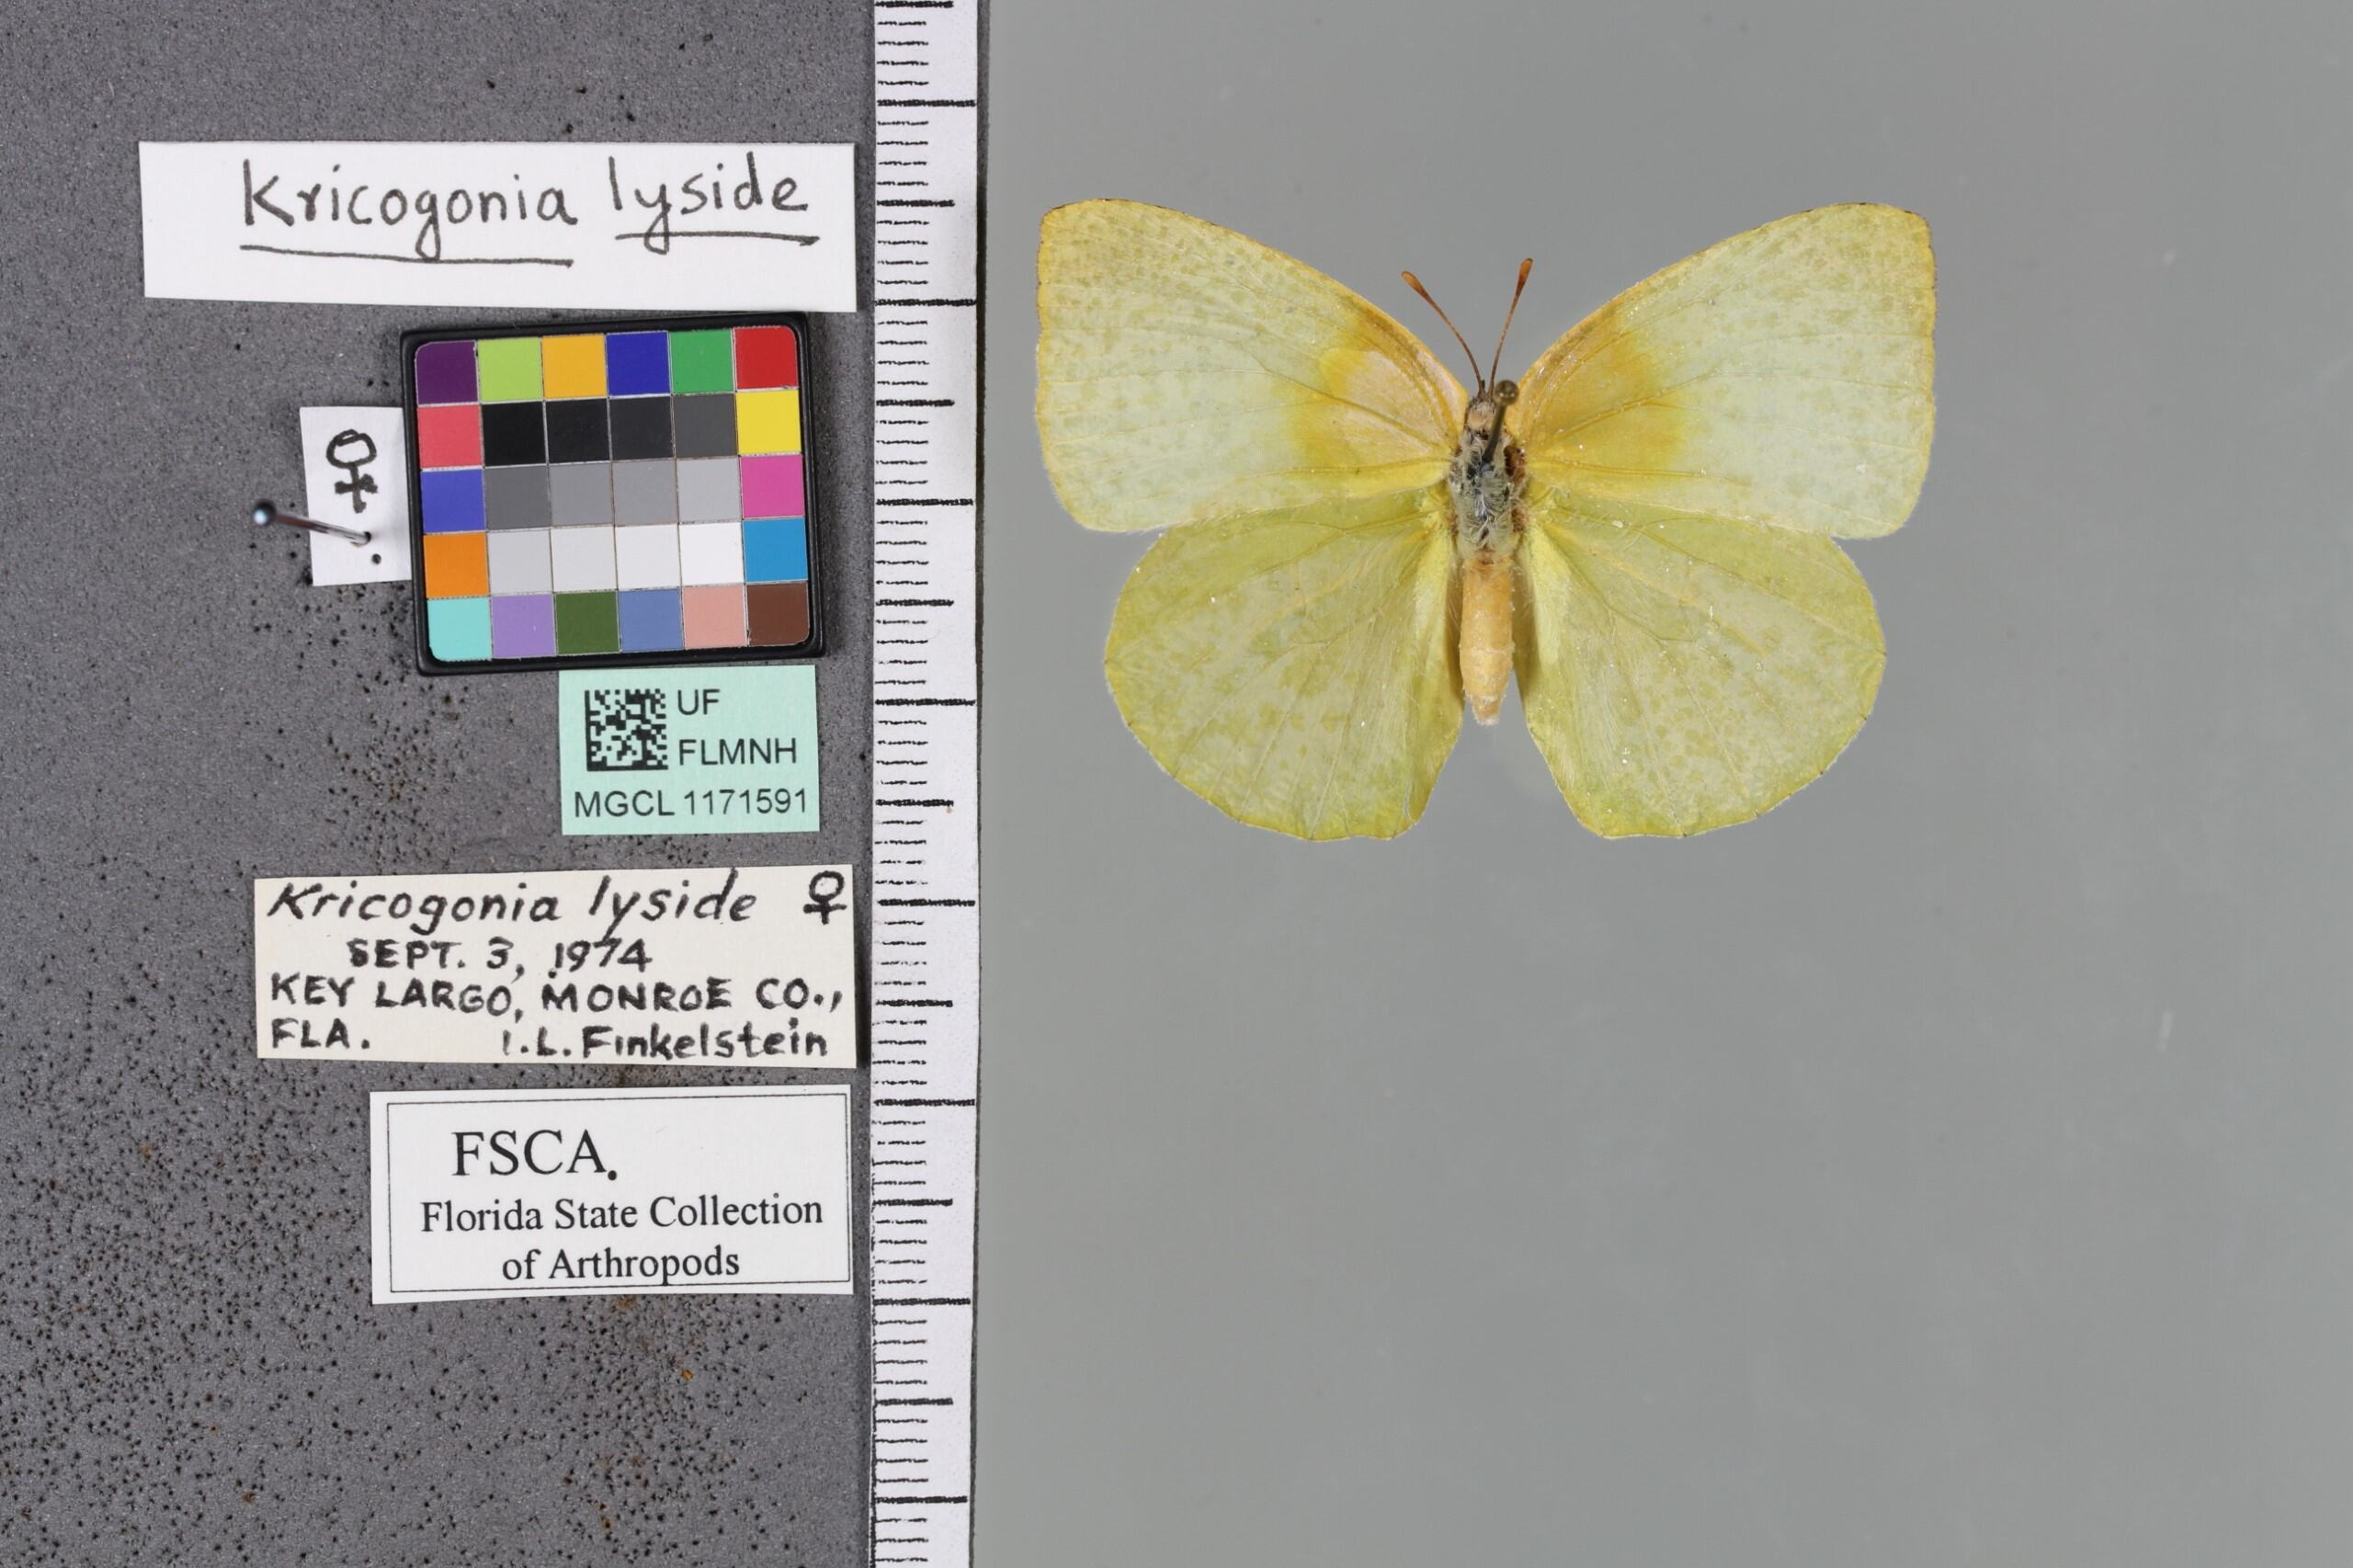 Kricogonia lyside
♀
UF
FLMNH
MGCL 1171591
Kricogonia lyside ♀
SEPT. 3, 1974
KEY LARGO, MONROE CO.,
FLA. I.L. Finkelstein
FSCA.
Florida State Collection
of Arthropods